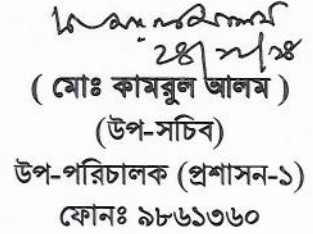 ( মোঃ কামরুল আলম )
(উপ-সচিব)
উপ-পরিচালক (প্রশাসন-১)
ফোনঃ ৯৮৬১৩৬০